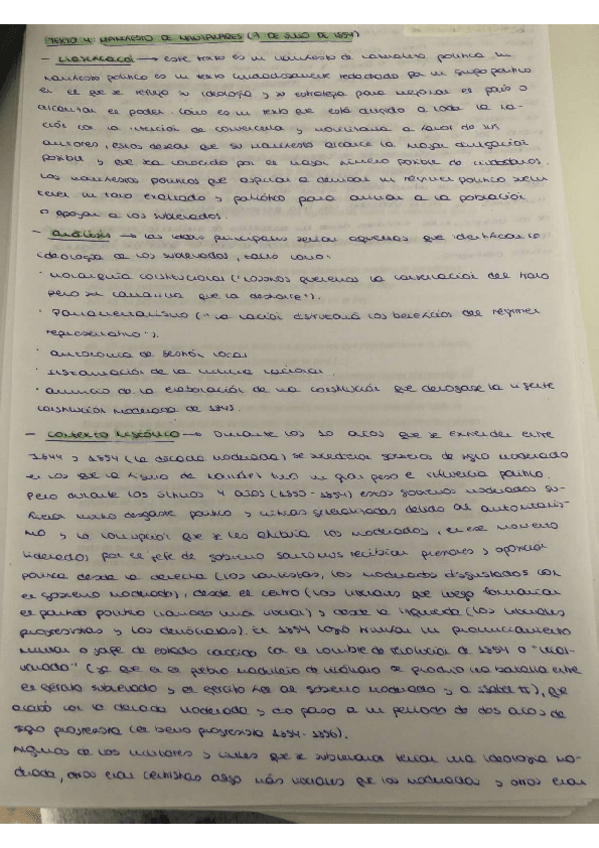 TEXTO 4: MANIFIESTO DE MANZANARES (7 DE JULIO DE 1854)
- Clasificación → este texto es un manifiesto de carácter político. Un
manifiesto político es un texto cuidadosamente redactado por un grupo político
en el que se refleja su ideología y su estrategia para mejorar el país o
alcanzar el poder. Como es un texto que está dirigido a toda la na-
ción con la intención de convencerla y movilizarla a favor de sus
autores, estos desean que su manifiesto alcance la mayor divulgación
posible y que sea conocido por el mayor número posible de ciudadanos.
Los manifiestos políticos que aspiran a derribar un régimen político suelen
tener un tono exaltado y patriótico para animar a la población
a apoyar a los sublevados.
- Análisis → las ideas principales serían aquellas que identifican la
ideología de los sublevados, tales como:
· Monarquía constitucional ("nosotros queremos la conservación del trono
pero sin camarilla que lo deshonre").
· Parlamentarismo ("la nación disfrutará los beneficios del régimen
representativo").
· autonomía de gestión local
· instauración de la milicia nacional.
· anuncio de la elaboración de una constitución que derogase la vigente
constitución moderada de 1845.
- Contexto histórico → Durante los 10 años que se extienden entre
1844 y 1854 (la década moderada) se sucedieron gobiernos de signo moderado
en los que la figura de Narváez tuvo un gran peso e influencia política.
Pero durante los últimos 4 años (1850-1854) estos gobiernos moderados su-
frieron mucho desgaste político y críticas generalizadas debido al autoritaris-
mo y la corrupción que se les atribuía. Los moderados, en ese momento
liderados por el jefe de gobierno Sartorius recibían presiones y oposición
política desde la derecha (los carlistas, los moderados disgustados con
el gobierno moderado), desde el centro (los liberales que luego formarían
el partido político llamado unión liberal) y desde la izquierda (los liberales
progresistas y los demócratas). En 1854 logró triunfar un pronunciamiento
militar o golpe de estado conocido con el nombre de revolución de 1854 o "vical-
varada" (ya que en el pueblo madrileño de Vicálvaro se produjo una batalla entre
el ejército sublevado y el ejército fiel al gobierno moderado y a Isabel II), que
acabó con la década moderada y dio paso a un periodo de dos años de
signo progresista (el bienio progresista 1854-1856).
Algunos de los militares y civiles que se sublevaron tenían una ideología mo-
derada, otros eran centristas algo más liberales que los moderados y otros eran